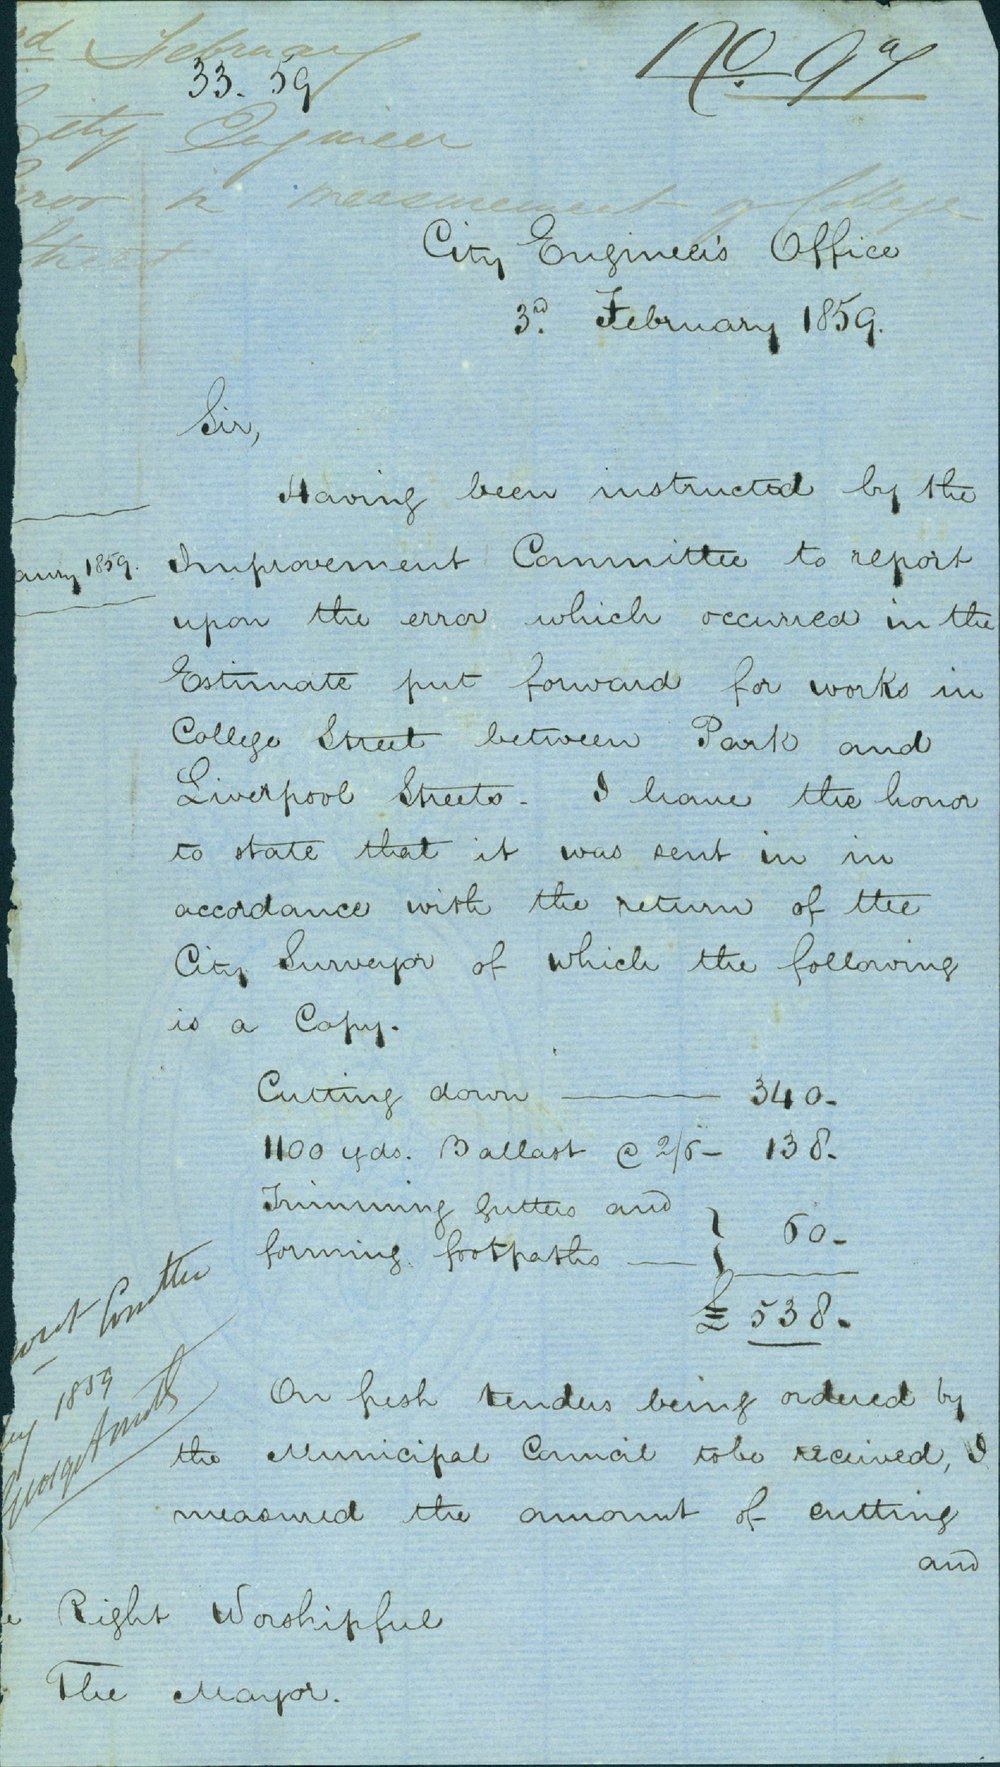 February
33. 59
No. 97
City Engineer
Error in measurement of College
Street
City Engineer's Office
3rd. February 1859.
Sir,
Having been instructed by the
Improvement Committee to report
upon the error which occurred in the
Estimate put forward for works in
College Street between Park and
Liverpool Streets. I have the honor
to state that it was sent in in
accordance with the return of the
City Surveyor of which the following
is a Copy.
Cutting down 340.
1100 yds. Ballast @ 2/6 138.
Trimming gutters and
forming footpaths 60.
£ 538.
On fresh tenders being ordered by
the Municipal Council to be received, I
measured the amount of cutting
and
Right Worshipful
The Mayor.
1859.
Comttee
1859
George A